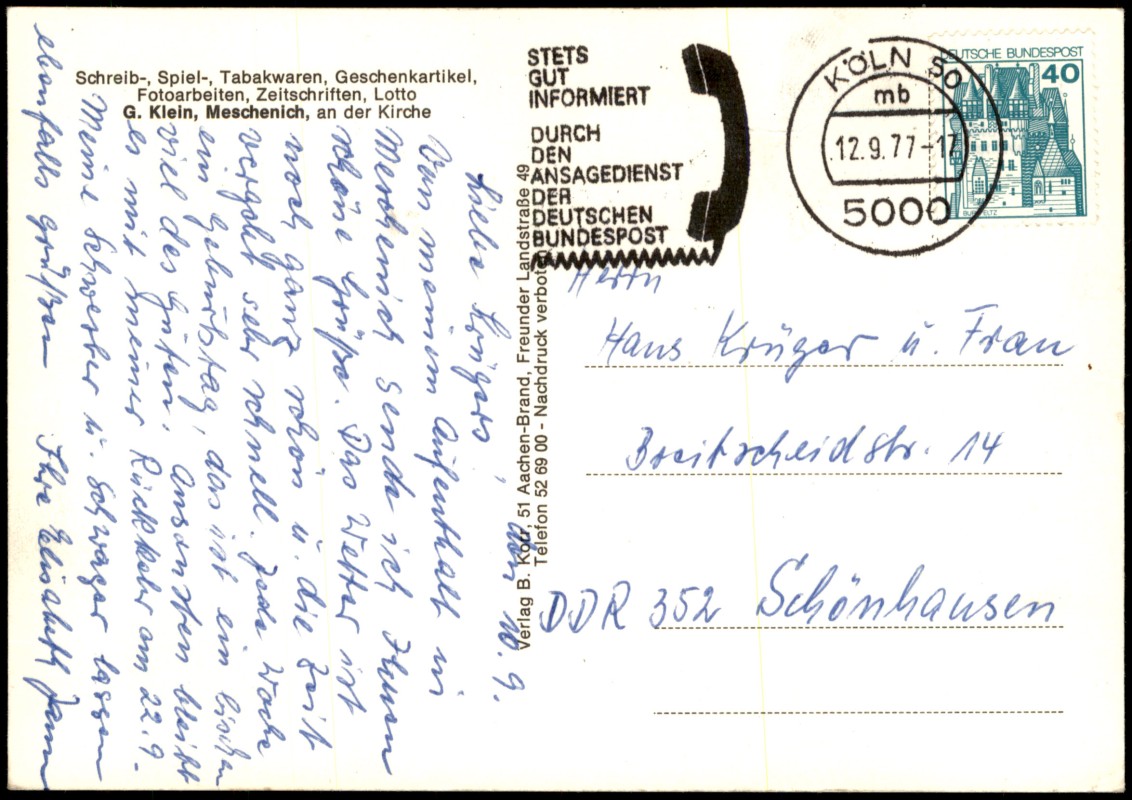 Schreib-, Spiel-, Tabakwaren, Geschenkartikel,
Fotoarbeiten, Zeitschriften, Lotto
G. Klein, Meschenich, an der Kirche
den 10. 9.
Liebe Krügers,
Von meinem Aufenthalt in
Meschenich sende ich Ihnen
schöne Grüße. Das Wetter ist
noch ganz schön u. die Zeit
vergeht sehr schnell. Jede Woche
ein Geburtstag, das ist ein bischen
viel des Guten. Ansonsten bleibt
es mit meiner Rückkehr am 22.9.
Meine Schwester u. Schwager lassen
ebenfalls grüßen Ihre Elisabeth
Verlag B. Kotz, 51 Aachen-Brand, Freunder Landstraße 49
Telefon 52 69 00 - Nachdruck verboten
STETS
GUT
INFORMIERT
DURCH
DEN
ANSAGEDIENST
DER
DEUTSCHEN
BUNDESPOST
KÖLN 50
mb
12.9.77-17
5000
DEUTSCHE BUNDESPOST
40
BURG ELTZ
Herrn
Hans Krüger u. Frau
Breitscheidstr. 14
DDR 352 Schönhausen